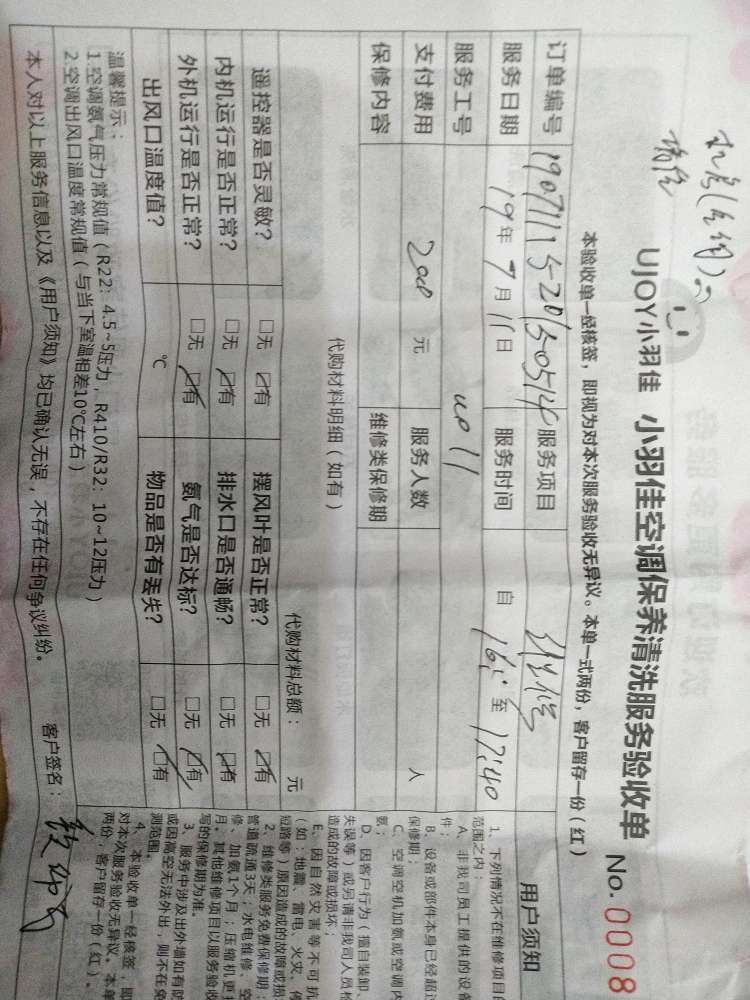 UJOY小羽佳 小羽佳空调保养清洗服务验收单 No. 0008
本验收单一经核签，即视为对本次服务验收无异议。本单一式两份，客户留存一份（红）
订单编号 服务项目 维修
服务日期 19年7月11日 服务时间 自 16: 至 17:40
服务工号 4011
支付费用 200 元 服务人数 人
保修内容 维修类保修期
代购材料明细（如有） 代购材料总额： 元
遥控器是否灵敏？ □无 ☑有 摆风叶是否正常？ □无 ☑有
内机运行是否正常？ □无 ☑有 排水口是否通畅？ □无 ☑有
外机运行是否正常？ □无 ☑有 氨气是否达标？ □无 ☑有
出风口温度值？ ℃ 物品是否有丢失？ □无 ☑有
温馨提示：
1.空调氨气压力常规值（R22：4.5~5压力，R410/R32：10~12压力）
2.空调出风口温度常规值（与当下室温相差10℃左右）
本人对以上服务信息以及《用户须知》均已确认无误，不存在任何争议纠纷。 客户签名：
用户须知
1、下列情况不在维修项目
范围之内：
A、非我司员工提供的设备
件；
B、设备或部件本身已经超
保修期；
C、空调空机加氨或空调内
氨；
D、因客户行为（擅自装卸、
失误等）或另请非我司人员
造成的故障或损坏；
E、因自然灾害等不可抗
（如：地震、雷电、火灾、
短路等）原因造成的故障或损
2、维修类服务免费保修期：
管道疏通3天；水电维修、空
修、加氨1个月；压缩机更
月。其他维修项目以服务验收
写的保修期为准。
3、服务中涉及出外墙如有防
或因高空无法外出，则不在
测范围。
4、本验收单一经核签，即
对本次服务验收无异议。本单
两份，客户留存一份（红）。